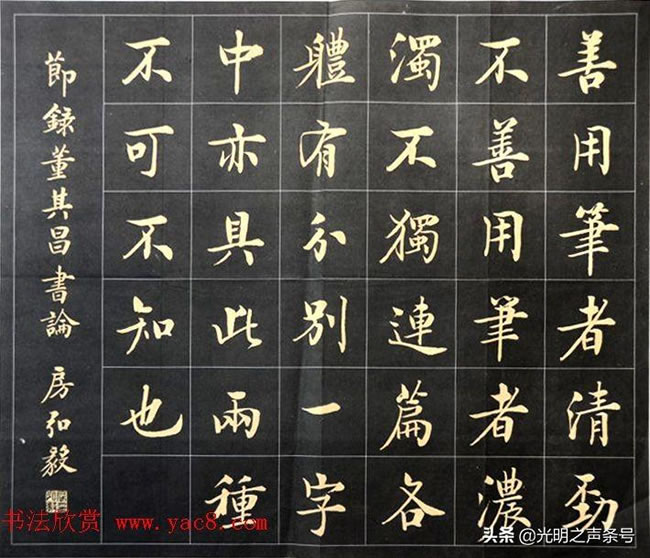 善用筆者清勁
不善用筆者濃
濁不獨連篇各
軆有分別一字
中亦具此兩種
不可不知也
節録董其昌書論 房弘毅
书法欣赏 www.yac8.com
头条 @光明之声条号